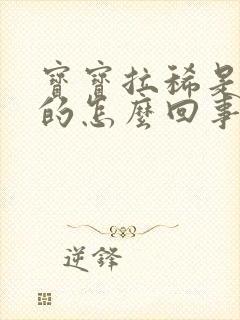 寶寶拉稀是
的怎麼回事
逆鋒